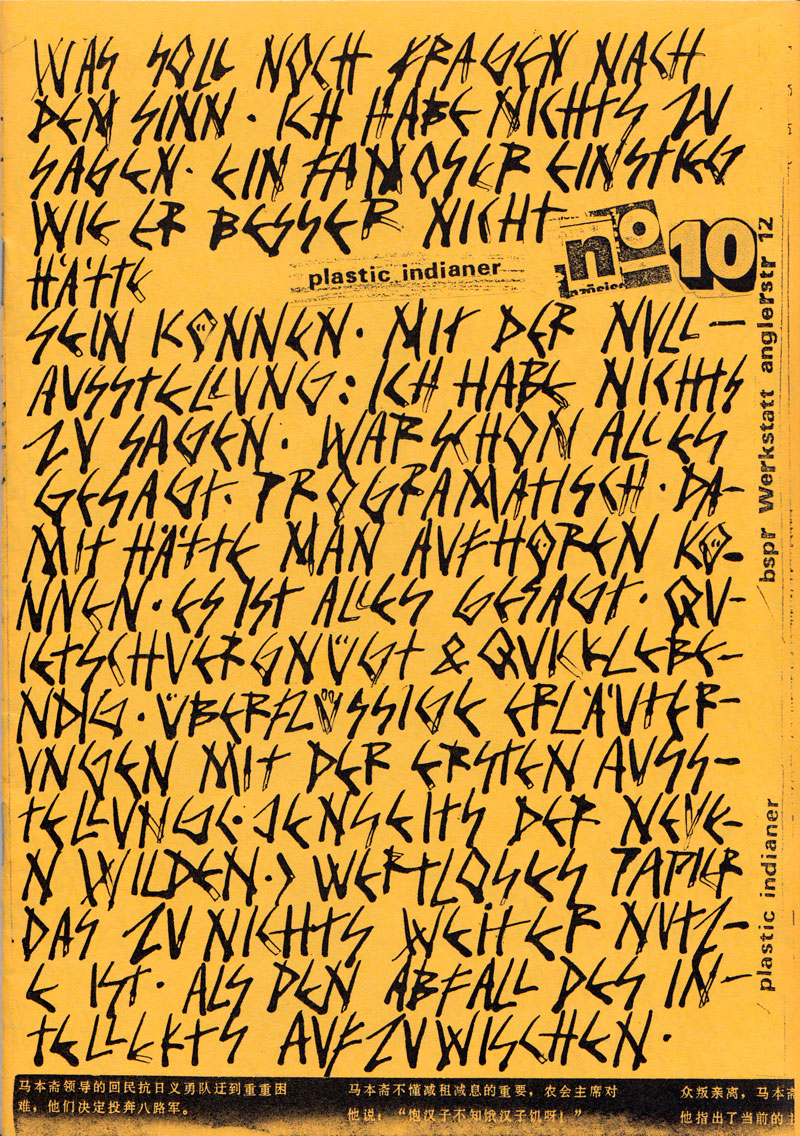 WAS SOLL NOCH FRAGEN NACH
DEM SINN. ICH HABE NICHTS ZU
SAGEN. EIN FAMOSER EINSTIEG
WIE ER BESSER NICHT
HÄTTE
plastic indianer
no 10
SEIN KÖNNEN. MIT DER NULL-
AUSSTELLUNG: ICH HABE NICHTS
ZU SAGEN. WAR SCHON ALLES
GESAGT. PROGRAMATISCH. DA-
MIT HÄTTE MAN AUFHÖREN KÖ-
NNEN. ES IST ALLES GESAGT. QU-
IETSCHVERGNÜGT & QUICKLEBE-
NDIG. ÜBERFLÜSSIGE ERLÄUTER-
UNGEN MIT DER ERSTEN AUSS-
TELLUNGE. JENSEITS DER NEUE-
N WILDEN.) WERTLOSES PAPIER
DAS ZU NICHTS WEITER NUTZ-
E IST. ALS DEN ABFALL DES IN-
TELLEKTS AUFZUWISCHEN.
bspr Werkstatt anglerstr 12
plastic indianer
马本斋领导的回民抗日义勇队迂到重重困
难，他们决定投奔八路军。
马本斋不懂减租减息的重要，农会主席对
他说：“饱汉子不知饿汉子饥呀！”
众叛亲离，马本斋
他指出了当前的主